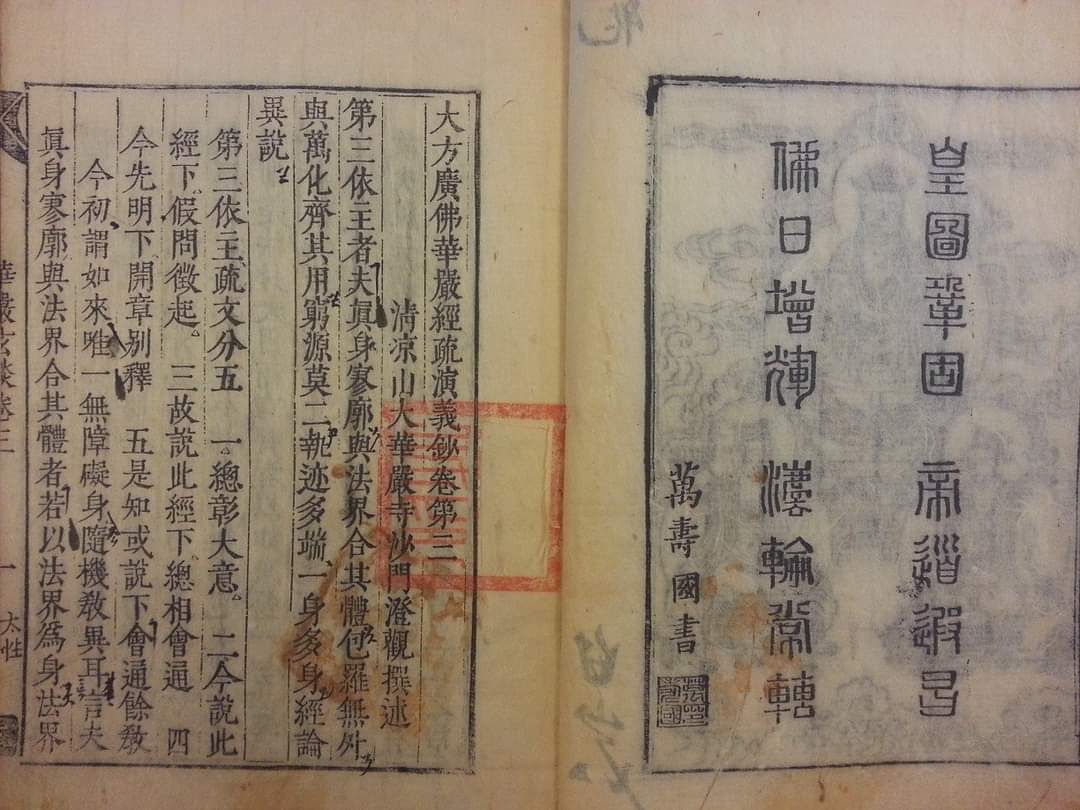 皇圖鞏固 帝道遐昌
佛日增輝 灋輪常轉
萬壽國書
大方廣佛華嚴經疏演義鈔卷第三
清凉山大華嚴寺沙門澄觀撰述
第三依主者夫眞身寥廓與法界合其體包羅無外
與萬化齊其用窮源莫二執迹多端一身多身經論
異說
第三依主疏文分五 一總彰大意。 二今說此
經下假問徵起。 三故說此經下總相會通 四
今先明下開章别釋 五是知或說下會通餘敎
今初謂如來唯一無障礙身隨機敎異耳言夫
眞身寥廓與法界合其體者若以法界爲身法界
華嚴玄談卷三 一 太性